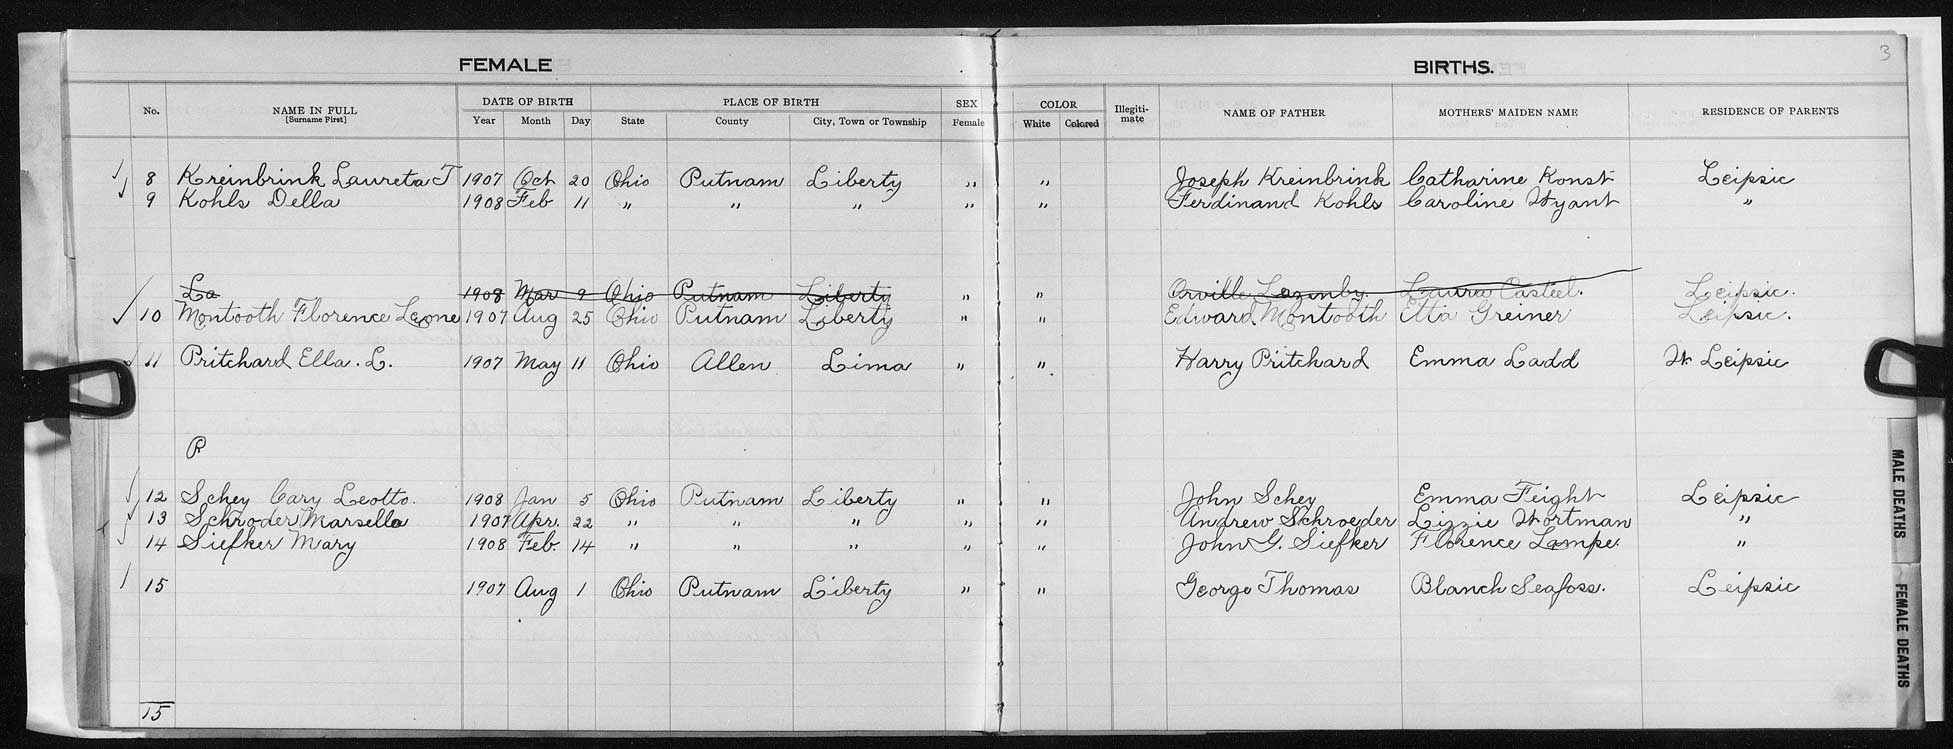 FEMALE BIRTHS. 3
No. NAME IN FULL [Surname First] DATE OF BIRTH Year Month Day PLACE OF BIRTH State County City, Town or Township SEX Female COLOR White Colored Illegiti-mate NAME OF FATHER MOTHERS' MAIDEN NAME RESIDENCE OF PARENTS
8 Kreinbrink Laureta T 1907 Oct 20 Ohio Putnam Liberty " " Joseph Kreinbrink Catharine Konst Leipsic
9 Kohls Della 1908 Feb 11 " " " " " Ferdinand Kohls Caroline Wyant "
La 1908 Mar 9 Ohio Putnam Liberty " " Orville Lazenby Laura Casteel. Leipsic.
10 Montooth Florence Leone 1907 Aug 25 Ohio Putnam Liberty " " Edward Montooth Etta Greiner Leipsic.
11 Pritchard Ella. L. 1907 May 11 Ohio Allen Lima " " Harry Pritchard Emma Ladd W Leipsic
P
12 Schey Cary Leotto. 1908 Jan 5 Ohio Putnam Liberty " " John Schey Emma Feight Leipsic
13 Schroder Marsella 1907 Apr. 22 " " " " " Andrew Schroeder Lizzie Wortman "
14 Siefker Mary 1908 Feb. 14 " " " " " John G. Siefker Florence Lampe. "
15 1907 Aug 1 Ohio Putnam Liberty " " George Thomas Blanch Seafoss. Leipsic
15
MALE DEATHS
FEMALE DEATHS